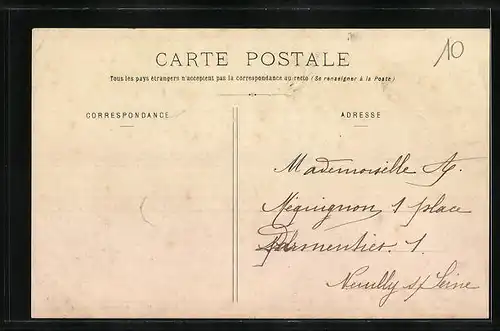 10
CARTE POSTALE
Tous les pays étrangers n'acceptent pas la correspondance au recto (Se renseigner à la Poste)
CORRESPONDANCE
ADRESSE
Mademoiselle
Méquignon 1 place
Parmentier. 1.
Neuilly s/ Seine